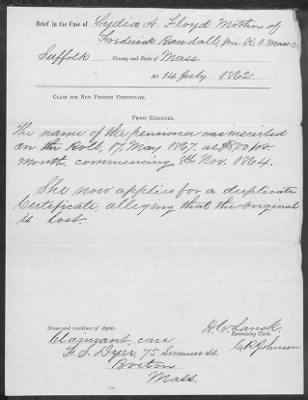 Brief in the Case of Lydia A. Floyd Mother of
Frederick Randall, K. 1 Mass
Suffolk County and State of Mass.
14 July 1862
CLAIM FOR NEW PENSION CERTIFICATE.
PROOF EXHIBITED.
The name of the pensioner was inscribed
on the Roll, 17 May 1867, at $8.00 pr.
month, commencing 8th Nov. 1864.
She now applies for a duplicate
Certificate, alleging that the original
is lost.
Name and residence of Agent.
Claimant care
F. S. Dyer, 75 Sumner St.
Boston
Mass.
Examining Clerk.
C. R. Johnson